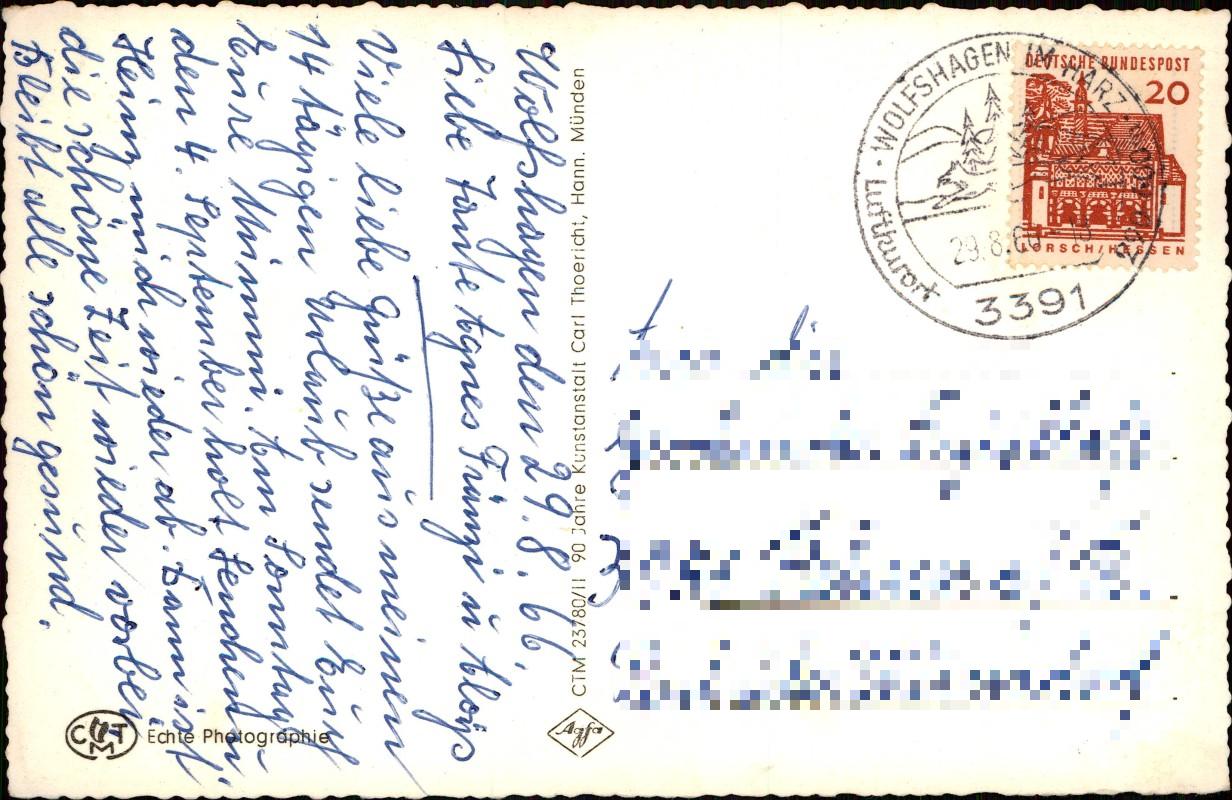 Wolfshagen den 29.8.66.
Liebe Tante Agnes Franzi u Aloys
Viele liebe Grüße aus meinem
14 tägigen Urlaub sendet Euch
Eure Mimmi. Am Sonntag
den 4. September holt Lenchen u
Heinz mich wieder ab. Dann ist
die schöne Zeit wieder vorbei
Bleibt alle schön gesund.
CTM 23780/II 90 Jahre Kunstanstalt Carl Thoericht, Hann. Münden
WOLFSHAGEN IM HARZ
Luftkurort
29.8.66
3391
DEUTSCHE BUNDESPOST
20
LORSCH/HESSEN
CTM
Echte Photographie
Agfa